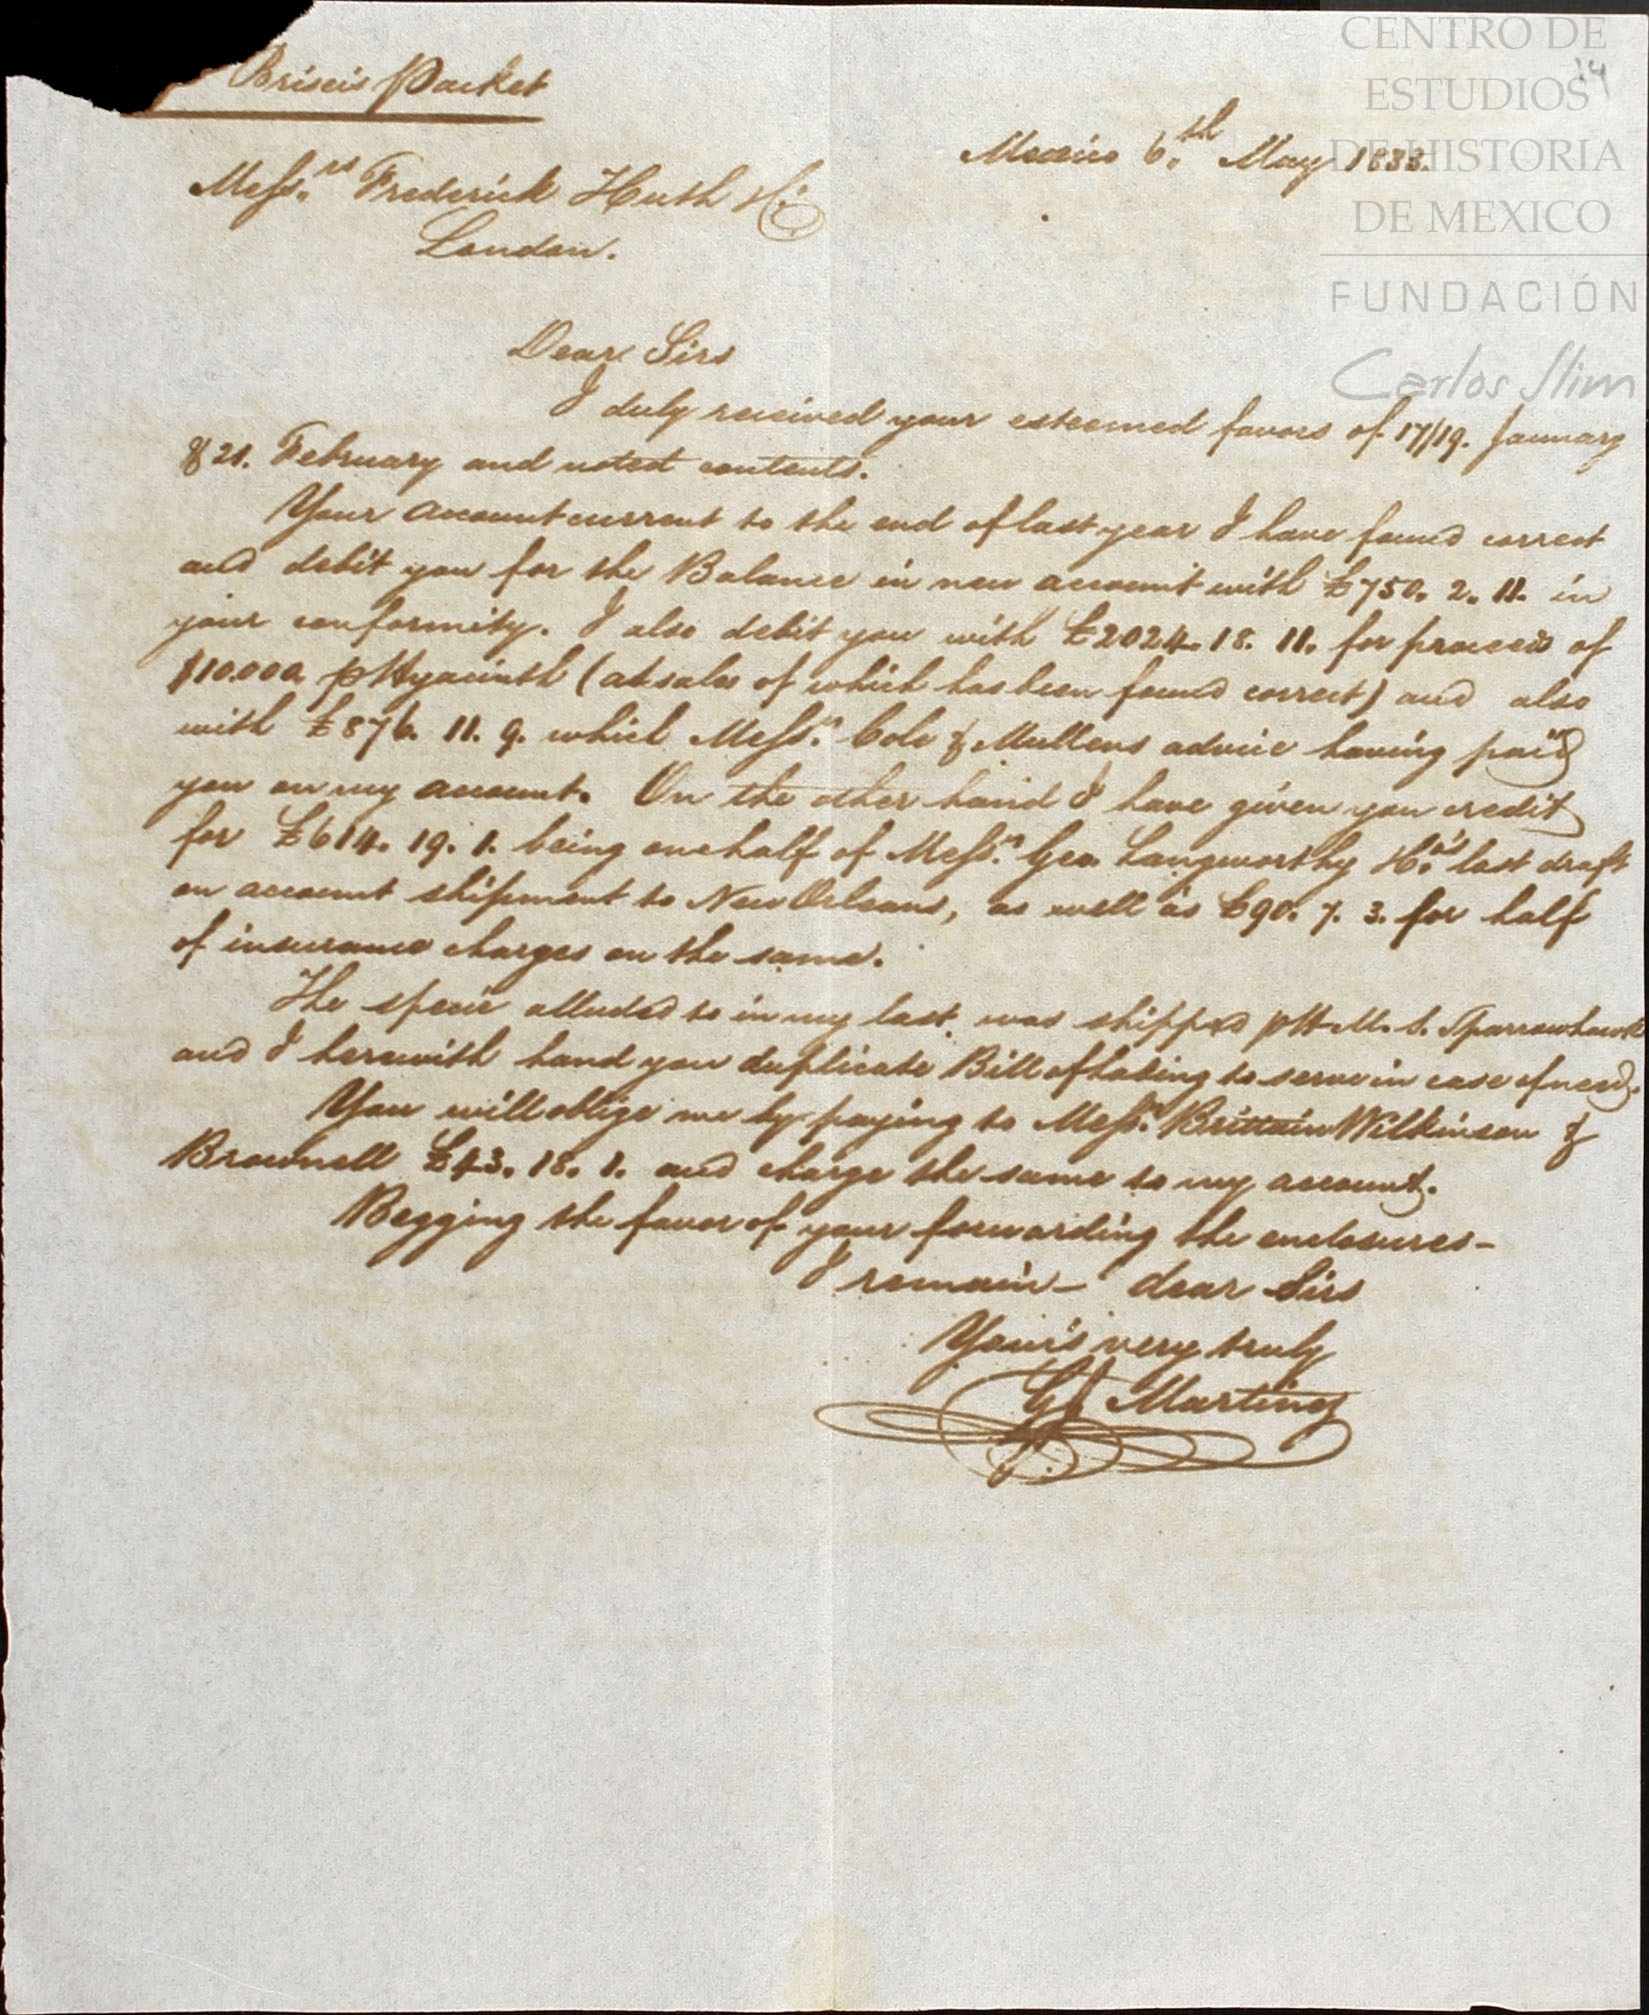 Briseis Packet
CENTRO DE
ESTUDIOS
DE HISTORIA
DE MEXICO
FUNDACIÓN
Carlos Slim
14
Mexico 6th May 1838.
Mess.rs Frederick Huth &
London.
Dear Sirs
I duly received your esteemed favors of 17/19. January
& 21. February and noted contents.
Your account current to the end of last year I have found correct
and debit you for the Balance in new account with £750. 2. 11. in
your conformity. I also debit you with £2024. 18. 11. for proceeds of
$10.000 p Hyacinth (a/sales of which has been found correct) and also
with £876. 11. 9. which Mess.rs Cole & Mullens advice having paid
you on my account. On the other hand I have given you credit
for £614. 19. 1. being one half of Mess.rs Geo. Langworthy last draft
on account shipment to New Orleans, as well as £90. 7. 3. for half
of insurance charges on the same.
The specie alluded to in my last, was shipped p H. M. S. Sparrowhawk
and I herewith hand you duplicate Bill of Lading to serve in case of need.
You will oblige me by paying to Mess.rs Brittain Wilkinson &
Brownell £43. 18. 1. and charge the same to my account.
Begging the favor of your forwarding the enclosures –
I remain – dear Sirs
Your's very truly
Martinez